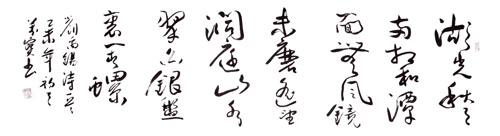 湖光秋月
两相和潭
面無风镜
未磨遥望
洞庭山水
翠白银盘
裏一青螺
劉禹锡诗
乙未年
书